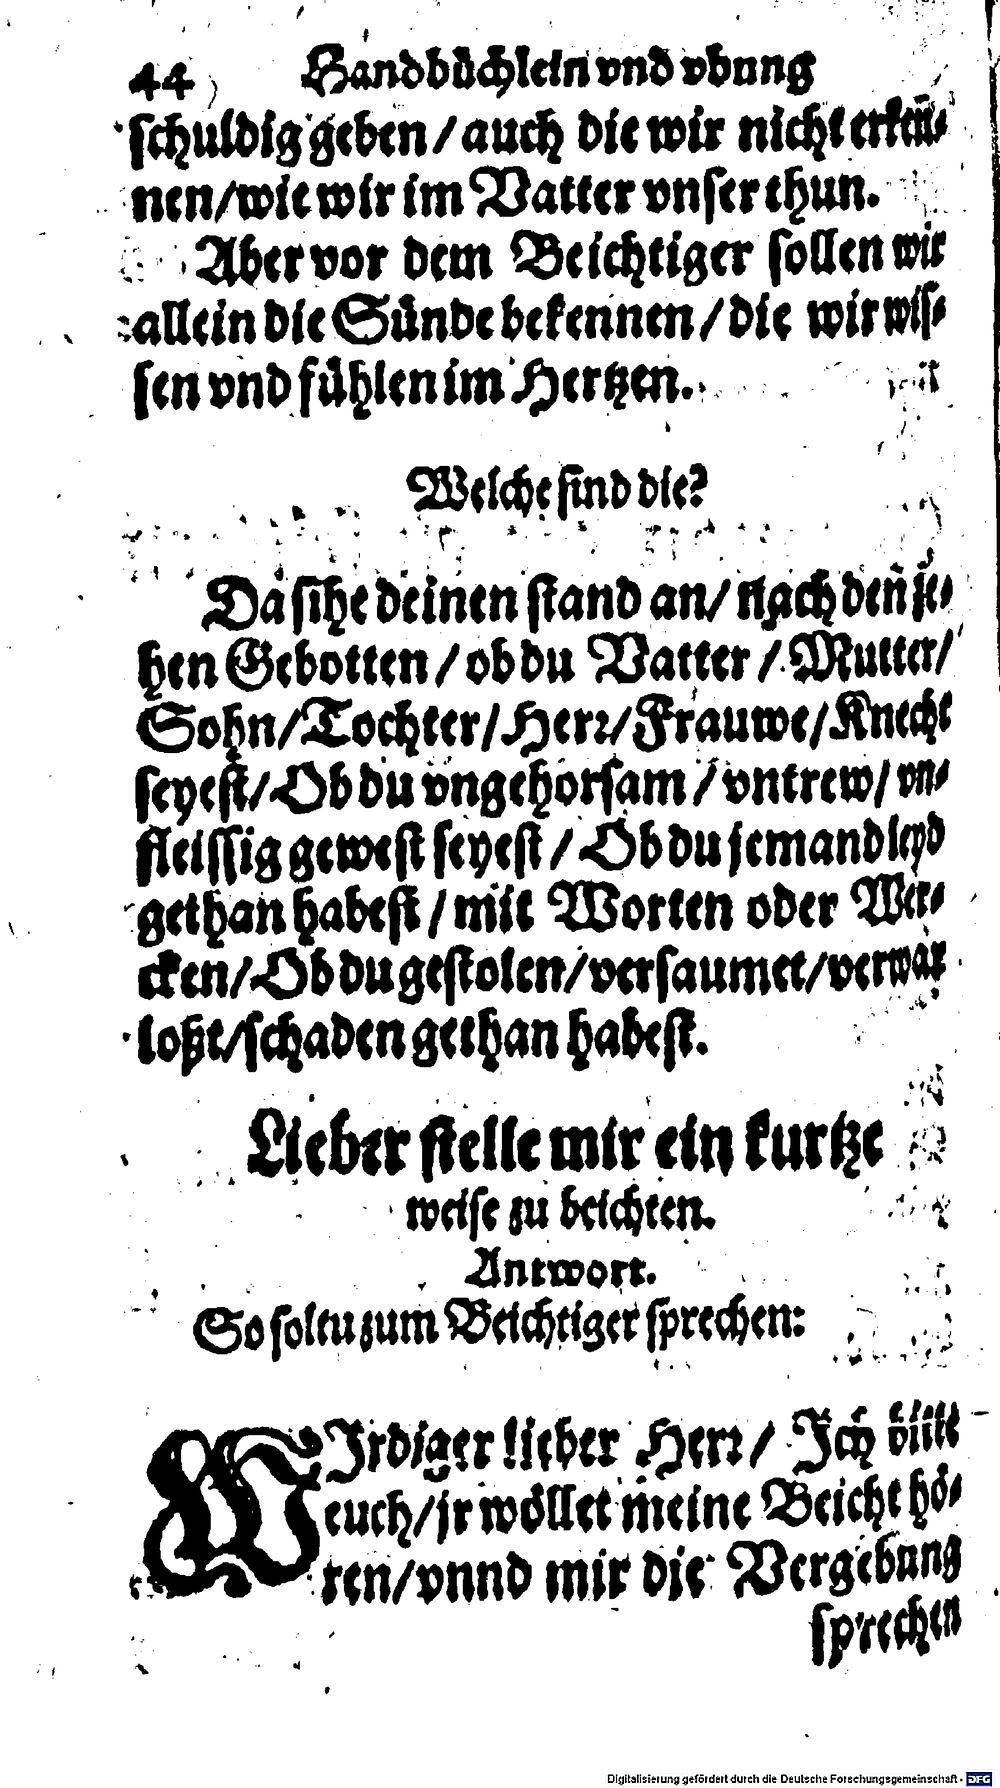 44 Handbüchlein vnd vbung
schuldig geben / auch die wir nicht erken̄⸗
nen/wie wir im Vatter vnser thun.
Aber vor dem Beichtiger sollen wir
allein die Sünde bekennen / die wir wis⸗
sen vnd fühlen im Hertzen.
Welche sind die?
Da sihe deinen stand an/ nach den̄ ze⸗
hen Gebotten / ob du Vatter / Mutter/
Sohn/Tochter/Herr/Frauwe/Knecht
seyest/Ob du vngehorsam / vntrew/ vn⸗
fleissig gewest seyest / Ob du jemand leyd
gethan habest / mit Worten oder Wer⸗
cken/Ob du gestolen/versaumet/verwar
loßt/schaden gethan habest.
Lieber stelle mir ein kurtze
weise zu beichten.
Antwort.
So soltu zum Beichtiger sprechen:
WIrdiger lieber Herr / Ich bitte
euch/jr wöllet meine Beicht hö⸗
ren/vnnd mir die Vergebung
sprechen
Digitalisierung gefördert durch die Deutsche Forschungsgemeinschaft - DFG